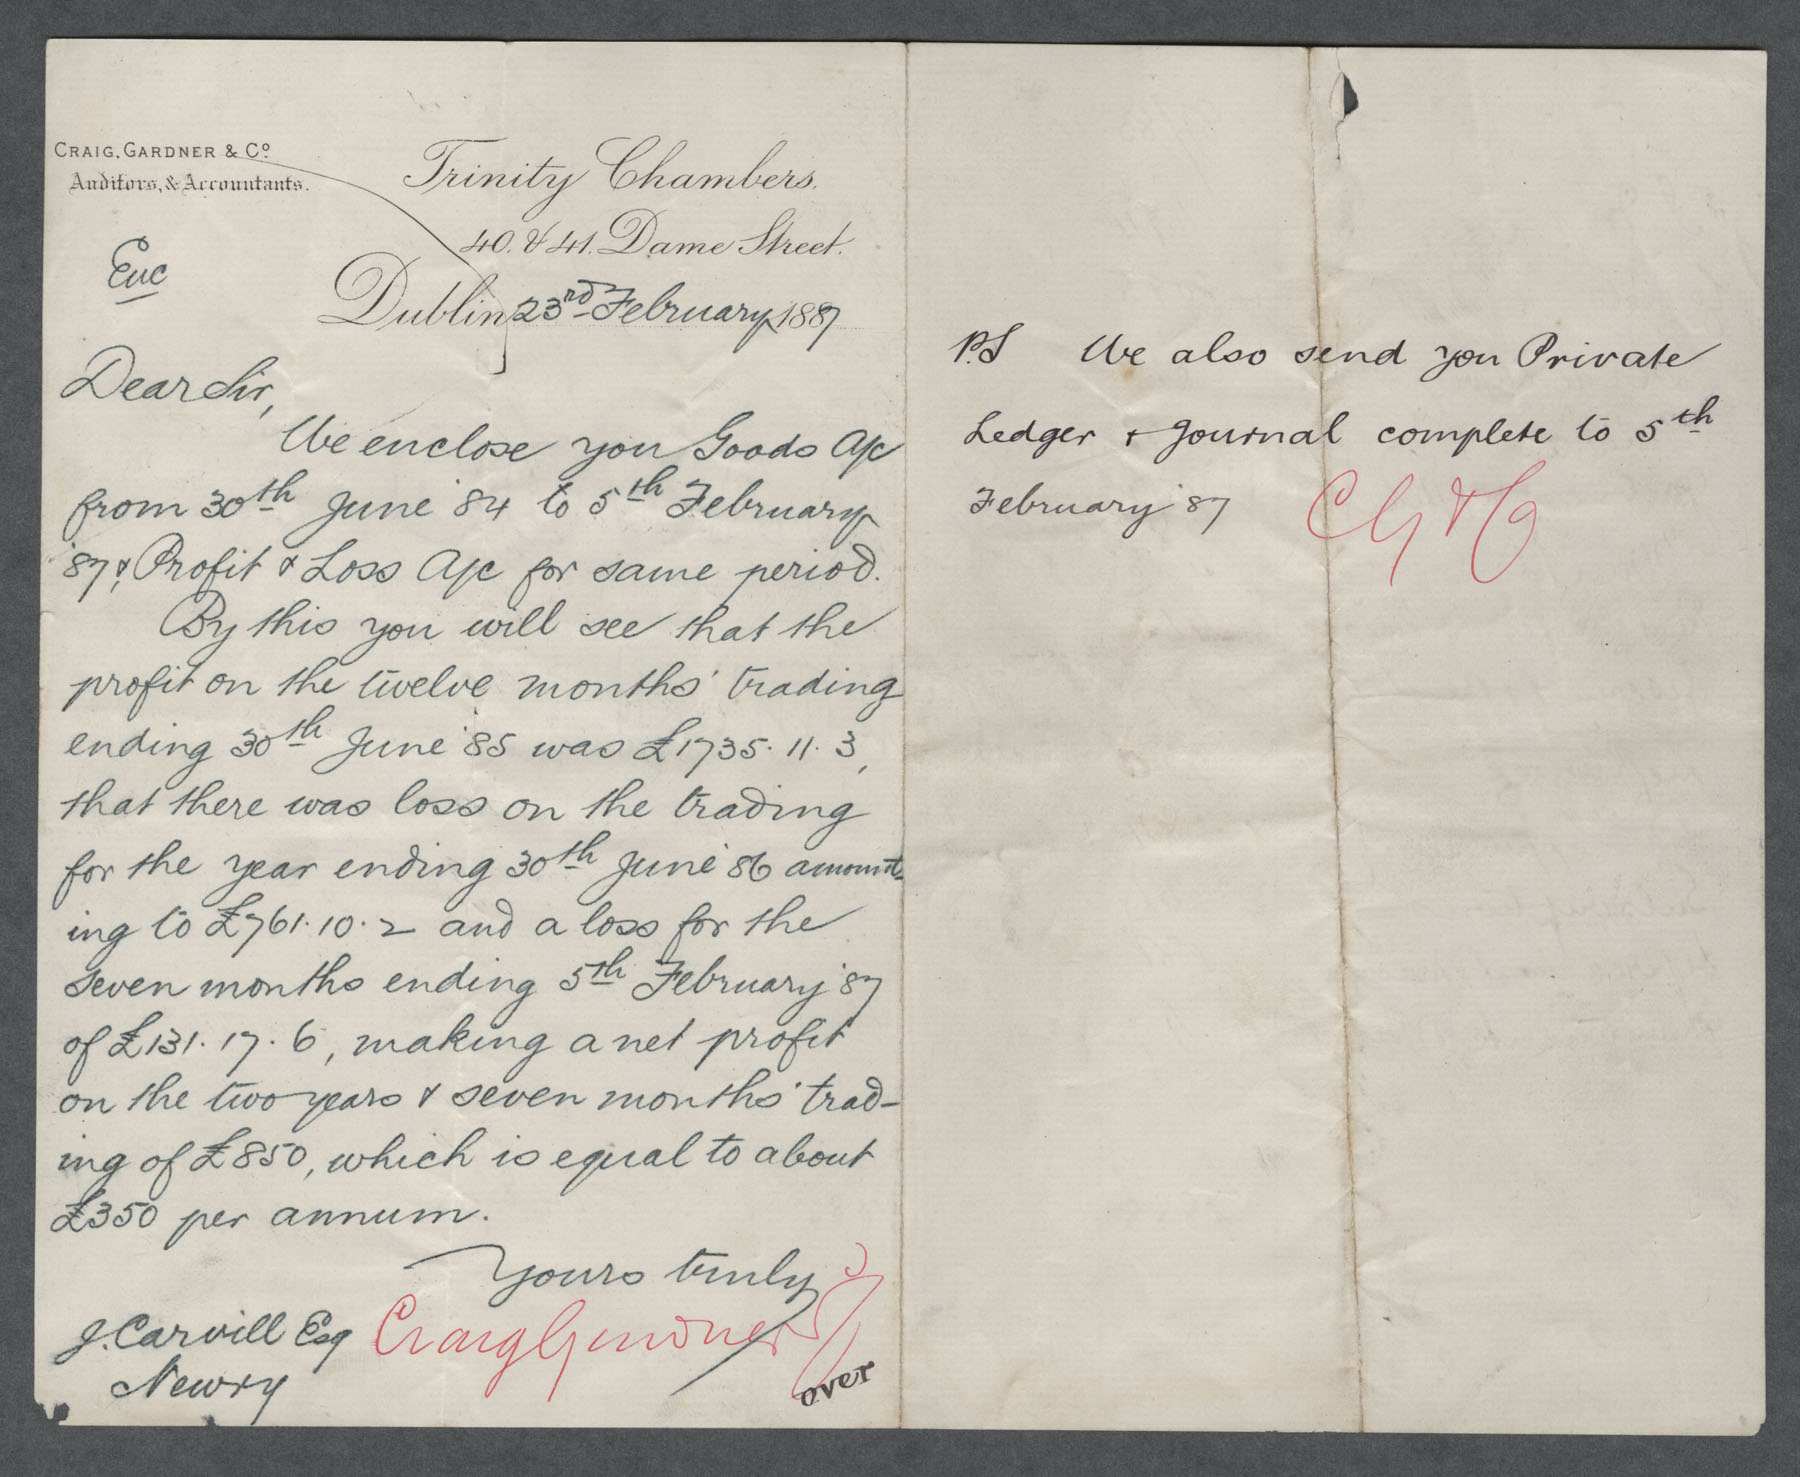 CRAIG, GARDNER & Co.
Auditors, & Accountants.
Trinity Chambers.
40. & 41. Dame Street.
Enc
Dublin, 23rd February 1887
Dear Sir,
We enclose you Goods A/c
from 30th June '84 to 5th February
'87, & Profit & Loss A/c for same period.
By this you will see that the
profit on the twelve months' trading
ending 30th June '85 was £1735. 11. 3,
that there was loss on the trading
for the year ending 30th June '86 amount-
ing to £761. 10. 2 and a loss for the
seven months ending 5th February '87
of £131. 17. 6, making a net profit
on the two years & seven months' trad-
ing of £850, which is equal to about
£350 per annum.
Yours truly
J. Carvill Esq Craig Gardner & Co
Newry
over
P.S We also send you Private
Ledger & Journal complete to 5th
February '87 CG & Co